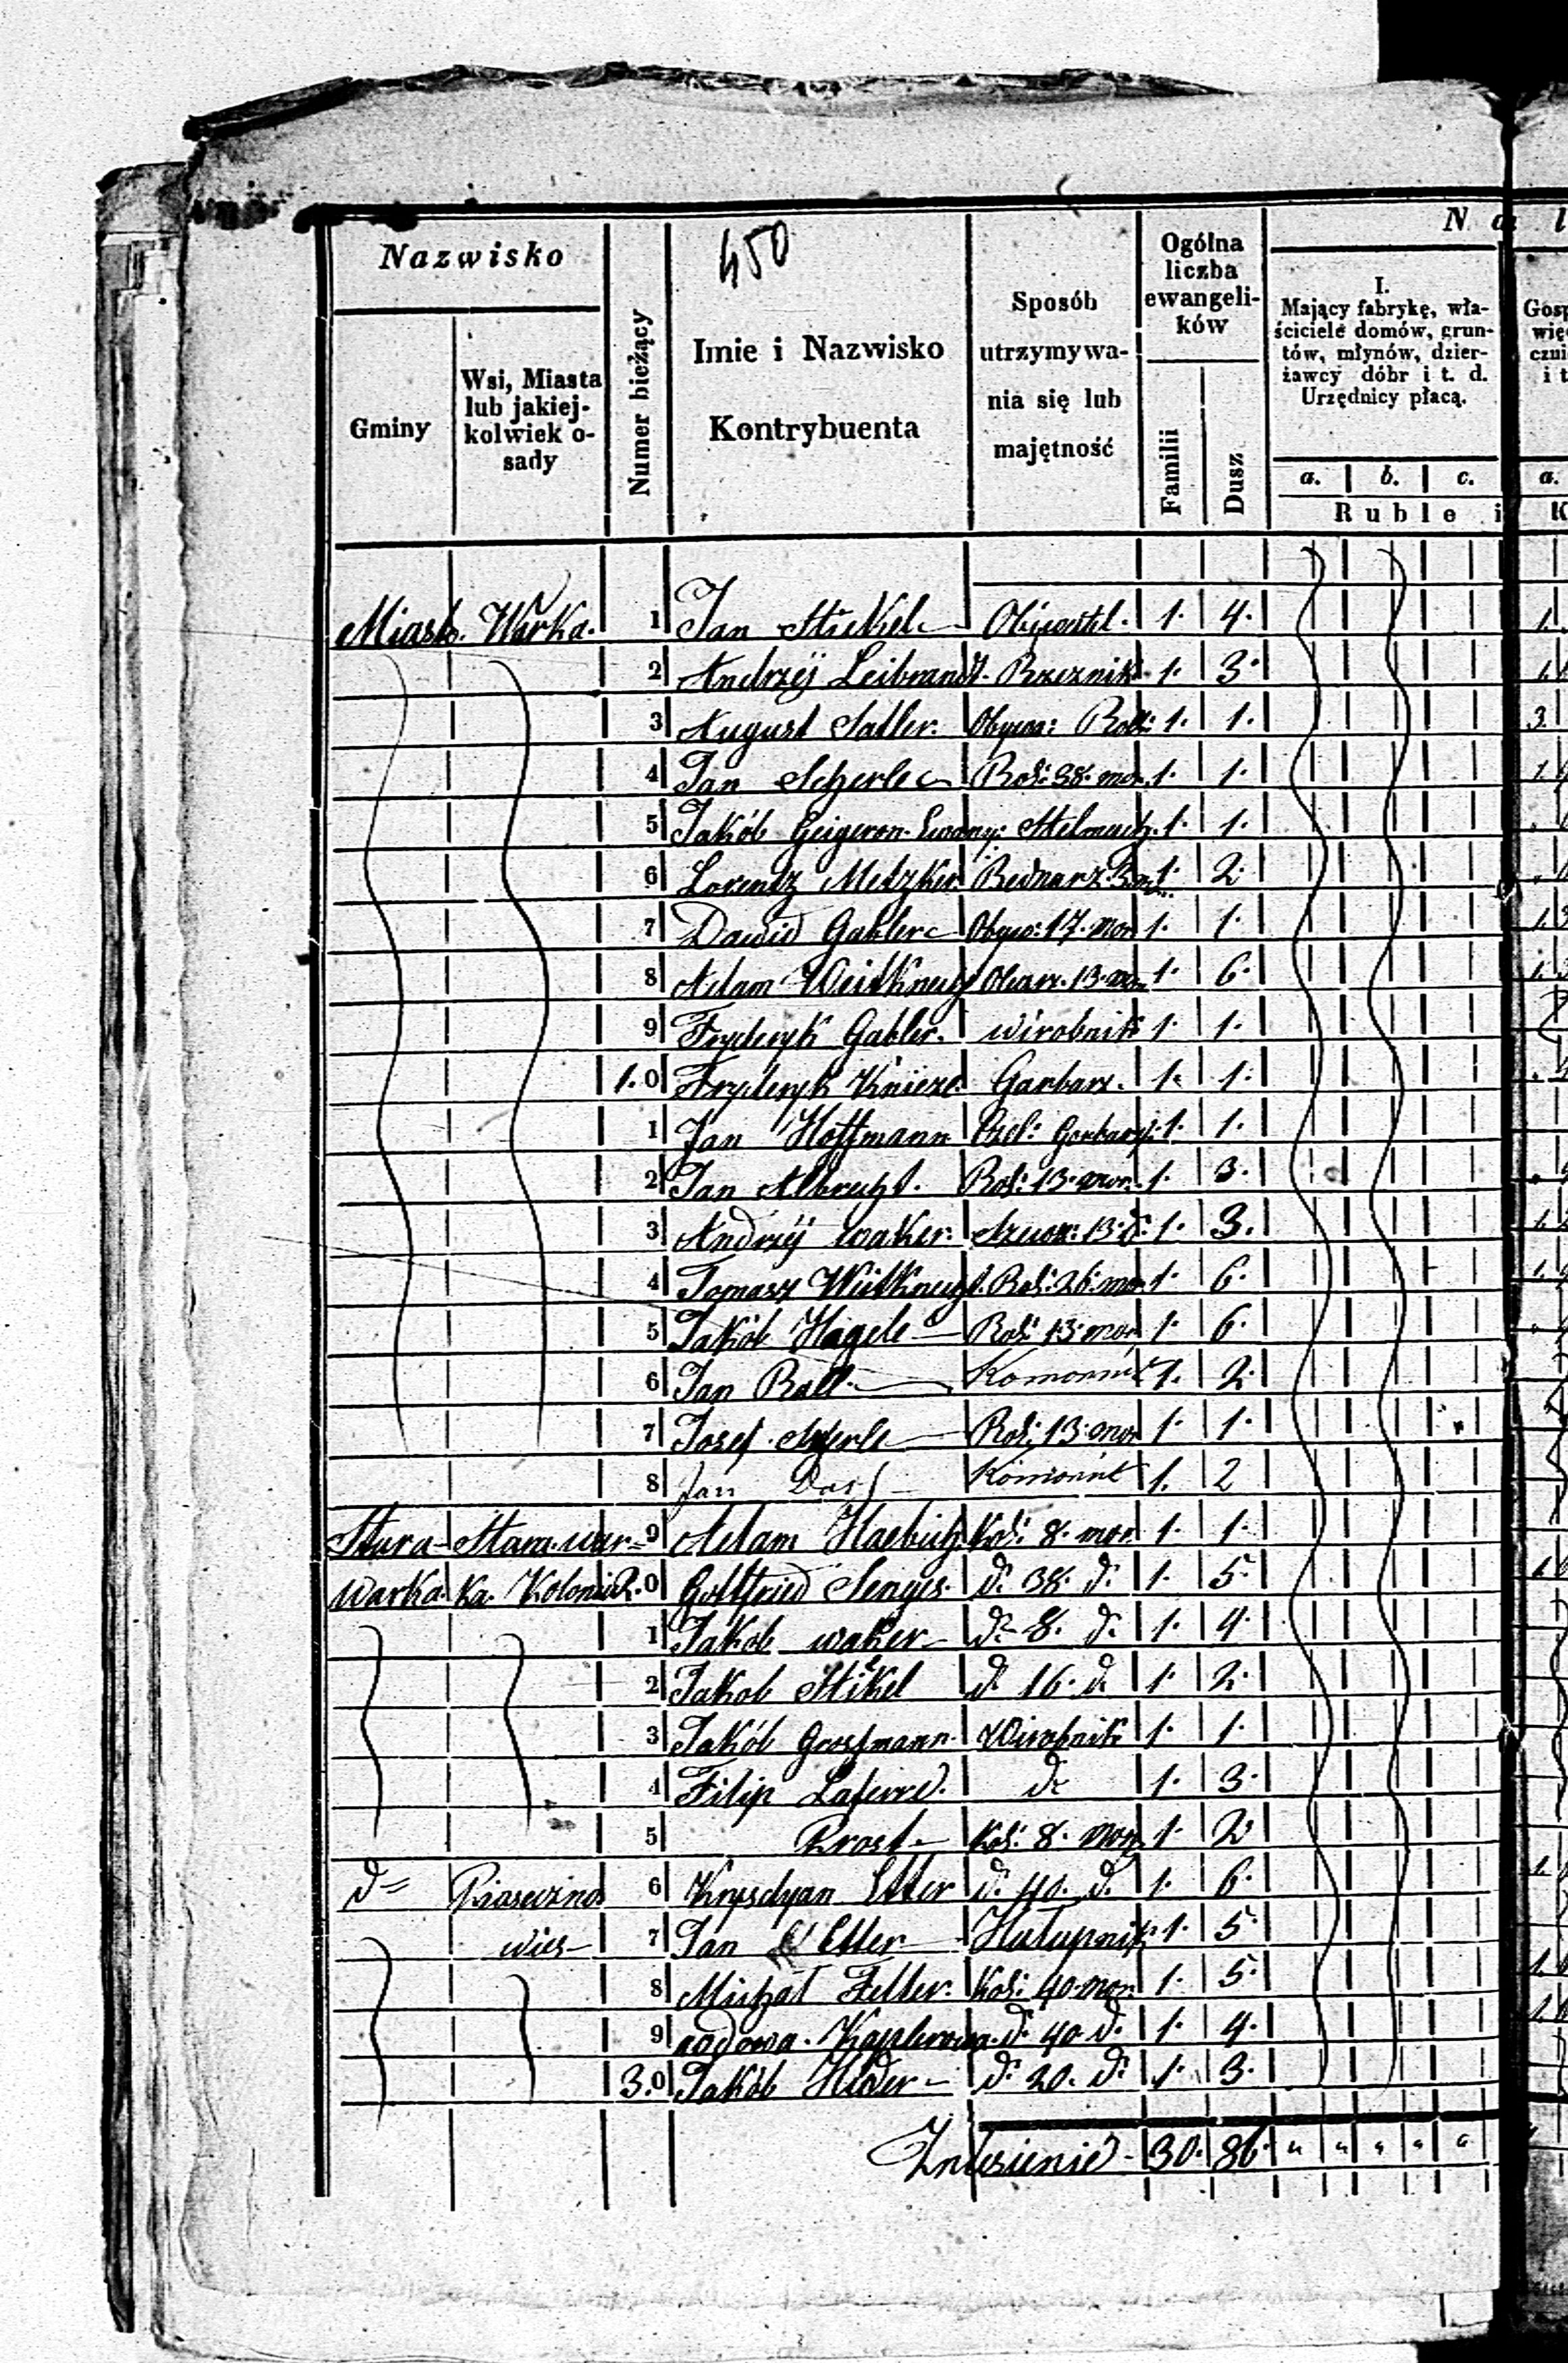 450
N a l
Nazwisko
Gminy
Wsi, Miasta lub jakiej-kolwiek o-sady
Numer bieżący
Imie i Nazwisko Kontrybuenta
Sposób utrzymywa-nia się lub majętność
Ogólna liczba ewangeli-ków
Familii
Dusz
I.
Mający fabrykę, wła-
ściciele domów, grun-
tów, młynów, dzier-
żawcy dóbr i t. d.
Urzędnicy płacą.
a. b. c. a.
Ruble i K
Miasto. Warka. 1 Jan Stickel Obywatel. 1. 4.
2 Andrzej Leibrandt. Rzeznik 1. 3.
3 August Satler. Obywa: Roln: 1. 1.
4 Jan Scherle Rol: 38. mor. 1. 1.
5 Jakób Geigeron. Stelmach. 1. 1.
6 Lorentz Metzker Bednarz 1. 2.
7 Dawid Gabler Obyw: 17. mor 1. 1.
8 Adam 13. mor 1. 6.
9 Fryderyk Gabler. wirobnik 1. 1.
1.0 Fryderyk Garbarz. 1. 1.
1 Jan Hoffmann Czel: Garbarz: 1. 1.
2 Jan Albrecht. Rol: 13. mor. 1. 3.
3 Andrzij waker. 13. d: 1. 3.
4 Tomasz Rol: 26. mor 1. 6.
5 Jakób Hägele Rol: 13. mor 1. 6.
6 Jan Ball Komornik 1. 2.
7 Josef Rol: 13. mor 1. 1.
8 Jan Komornik 1. 2
Stara Stara war= 9 Adam Haebich Kol: 8. mor 1. 1.
warka. ka. Kolonia 2.0 Gottfried Senges. d: 38. d: 1. 5.
1 Jakob waker d: 8. d: 1. 4.
2 Jakob Stikel d: 16. d: 1. 2.
3 Jakób Grossmann Wirobnik 1. 1.
4 Filip d: 1. 3.
5 Prost Kol: 8. mor 1. 2
d= 6 Krysdyan Etter d: 40. d: 1. 6.
wies 7 Jan Etter Hałupnik 1. 5.
8 Michał Feller. Kol: 40. mor 1. 5.
9 wdowa. Kaplerowa. d: 40 d: 1. 4.
3.0 Jakób Hider d: 20. d: 1. 3.
Zniesienie 30. 86.